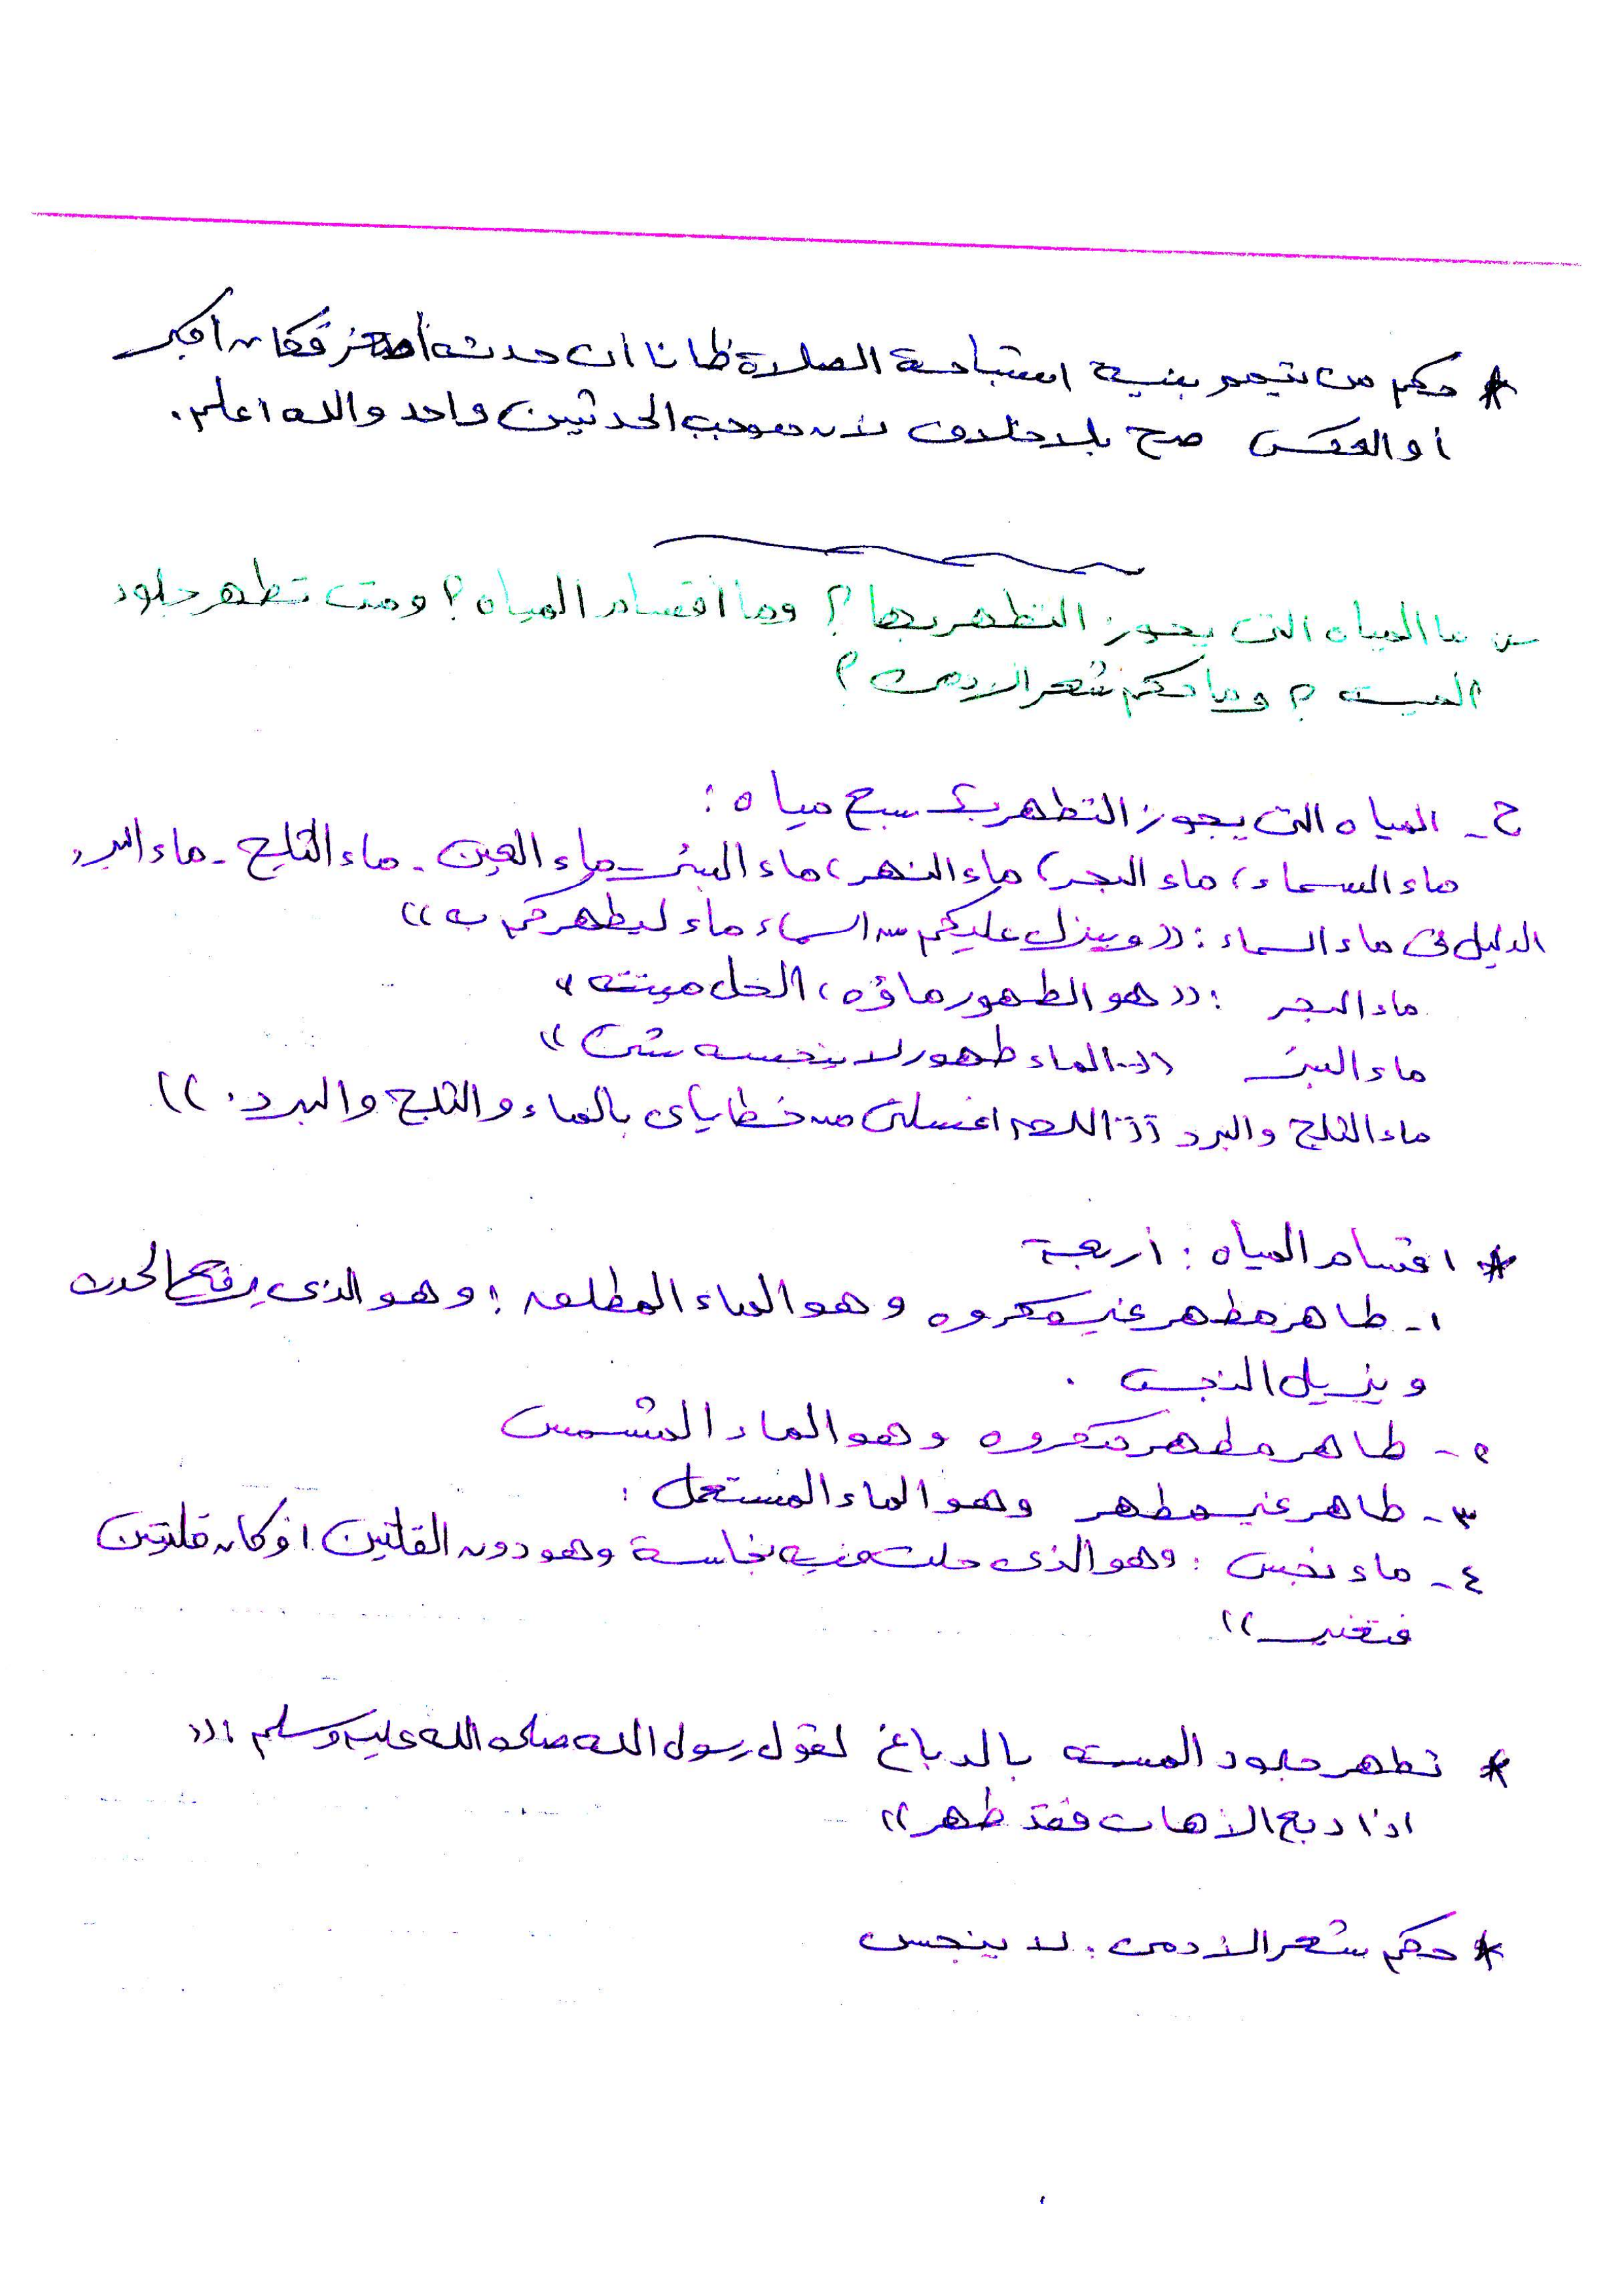 * حكم من تيمم بنية استباحة الصلاة ظانا ان حدثه أصغر فكان اكبر
أو العكس صح بلا خلاف لأن موجب الحدثين واحد والله اعلم.
س ما المياه التى يجوز التطهر بها؟ وما أقسام المياه؟ ومتى تطهر جلود
الميته ؟ وما حكم شعر الادمى ؟
ج - المياه التى يجوز التطهر بها سبع مياه :
ماء السماء، ماء البحر، ماء النهر، ماء البئر - ماء العين - ماء الثلج - ماء البرد
الدليل فى ماء السماء : ((وينزل عليكم من السماء ماء ليطهركم به))
ماء البحر : ((هو الطهور ماؤه، الحل ميتته))
ماء البئر ((الماء طهور لا ينجسه شئ))
ماء الثلج والبرد ((اللهم اغسلنى من خطاياى بالماء والثلج والبرد.))
* اقسام المياه : أربعة
١- طاهر مطهر غير مكروه وهو الماء المطلق : وهو الذى يرفع الحدث
ويزيل النجس .
٢- طاهر مطهر مكروه وهو الماء المشمس
٣- طاهر غير مطهر وهو الماء المستعمل :
٤- ماء نجس : وهو الذى حلت فيه نجاسة وهو دون القلتين او كان قلتين
فتغير))
* تطهر جلود الميته بالدباغ لقول رسول الله صلى الله عليه وسلم : ((
اذا دبغ الاهاب فقد طهر))
* حكم شعر الادمى : لا ينجس